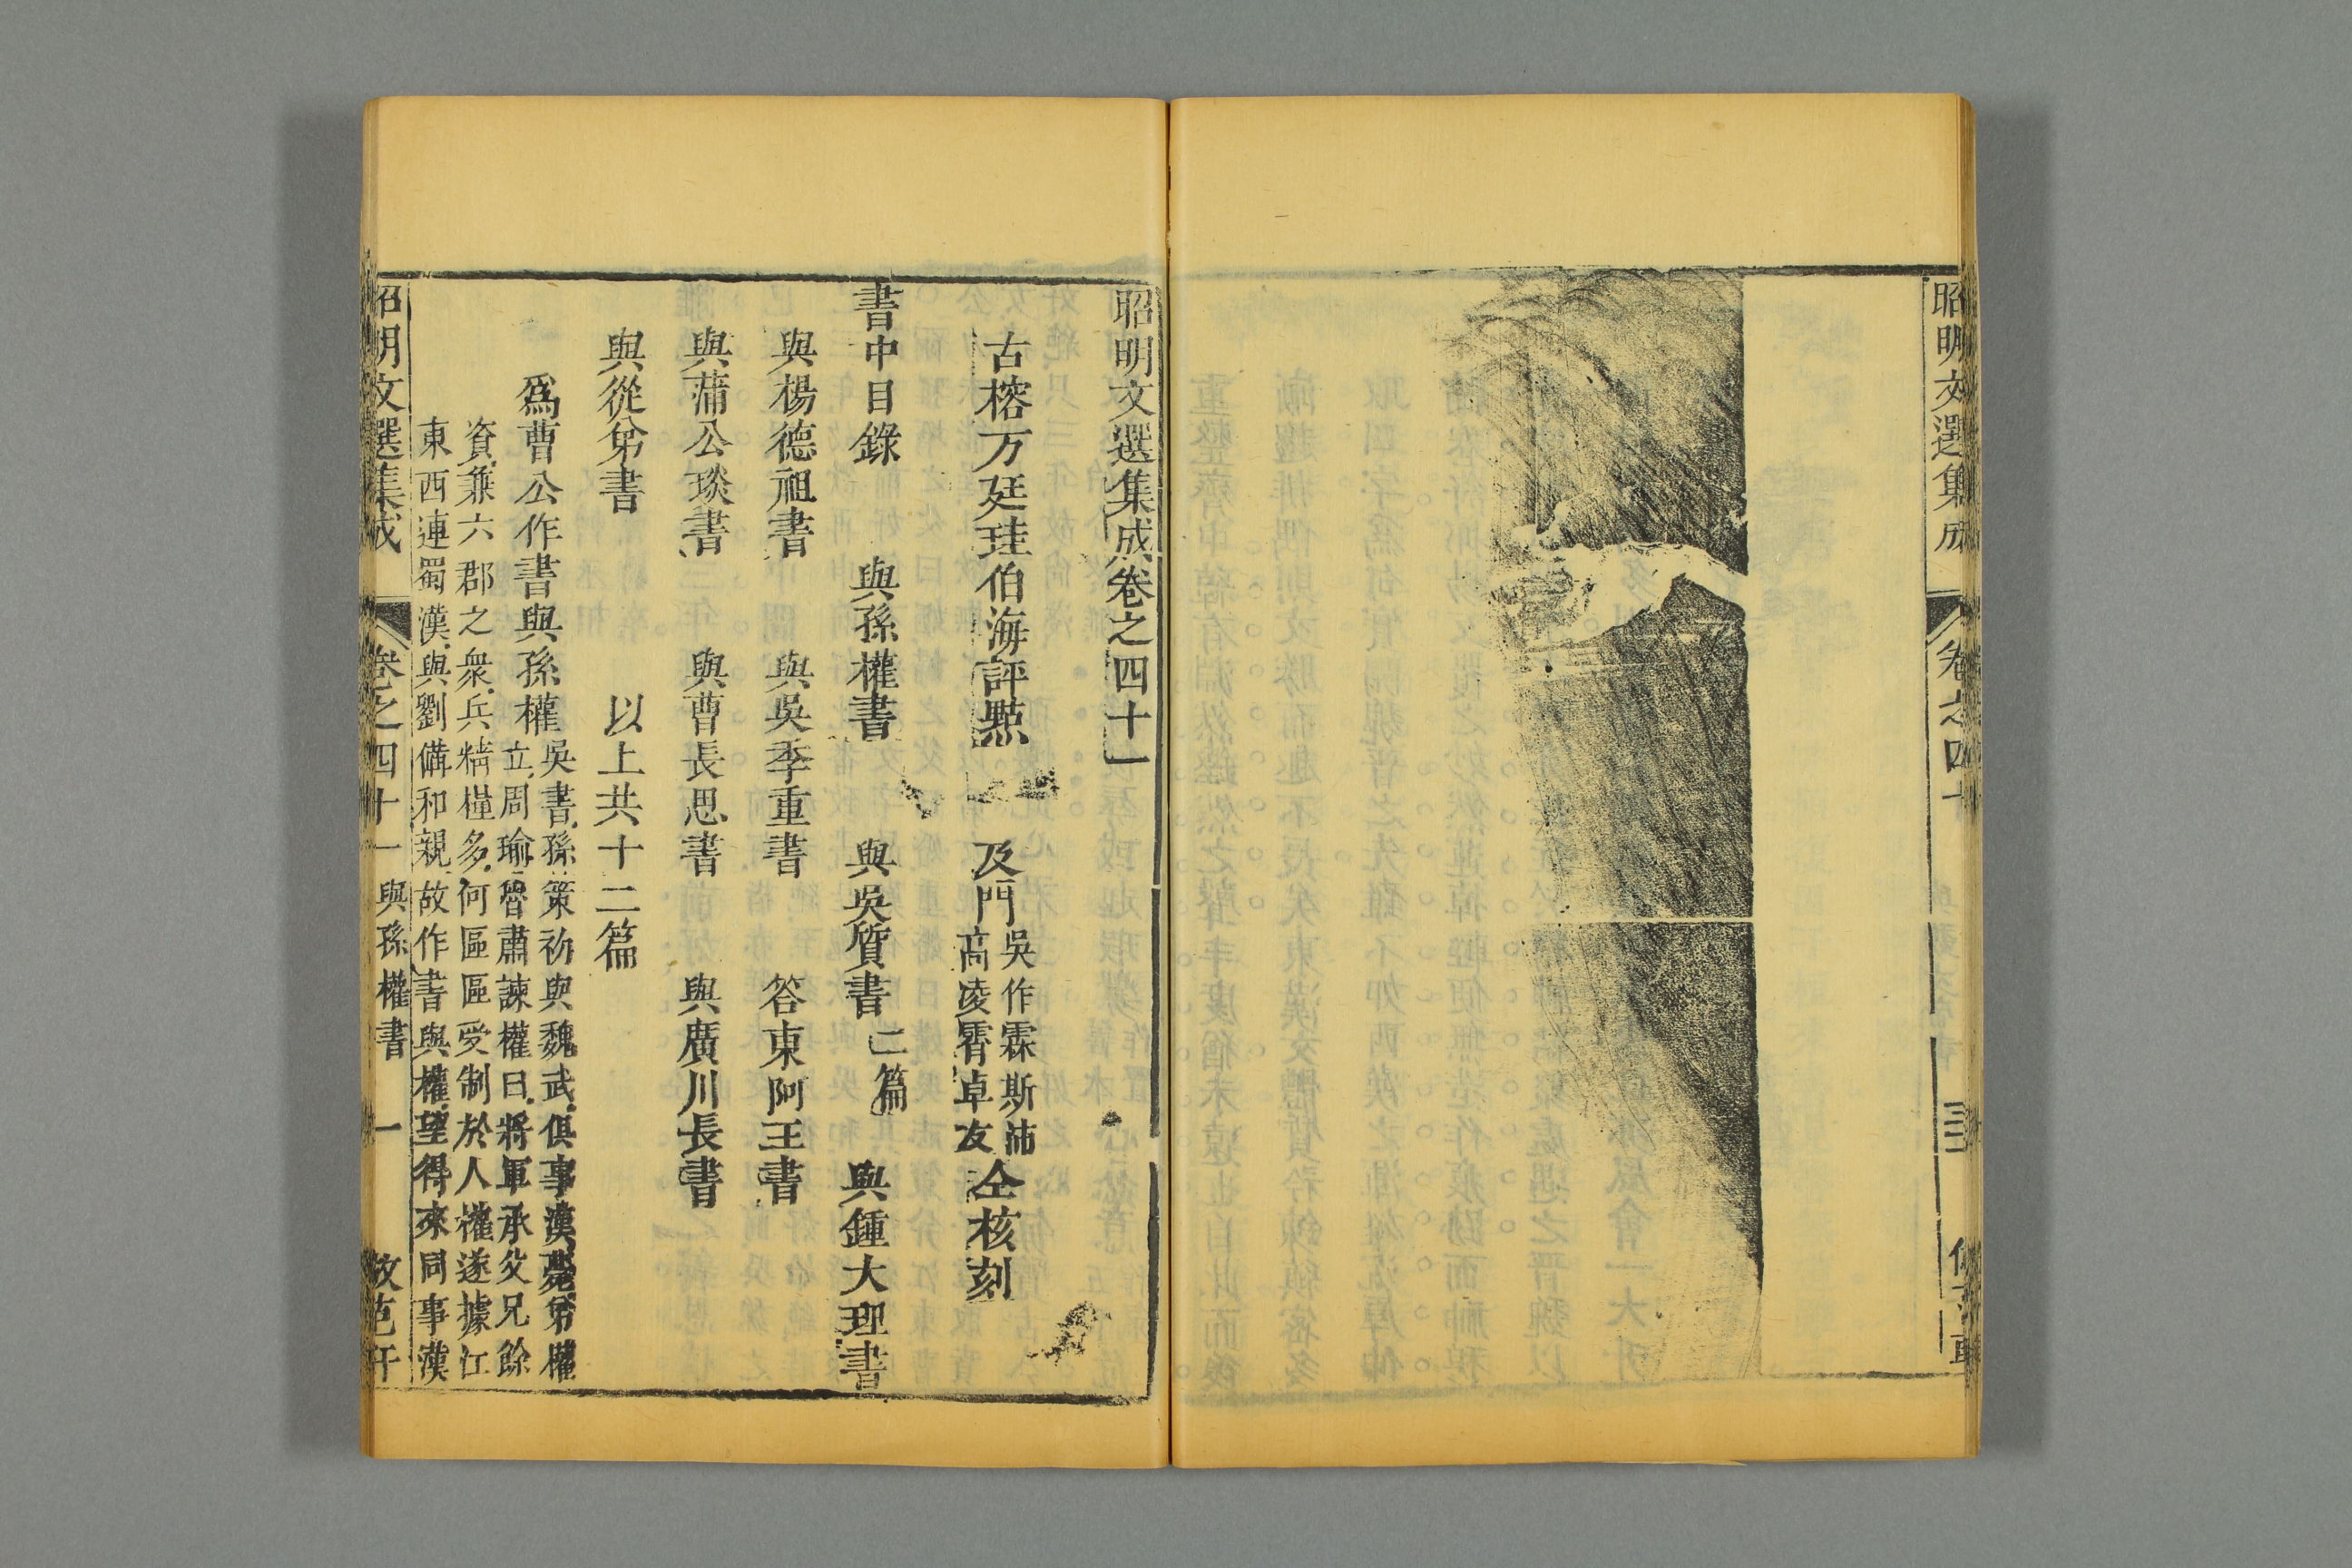 昭明文選集成
卷之四十
昭明文選集成卷之四十一
古榕万廷珪伯海評點
及門吳作霖斯沛
高凌霄卓友仝核刻
書中目錄
與孫權書
與吳質書二篇
與鍾大理書
與楊德祖書
與吳季重書
答東阿王書
與蒲公琰書
與曹長思書
與廣川長書
與從弟書
以上共十二篇
爲曹公作書與孫權
吳書孫策初與魏武俱事漢薨弟權
立周瑜魯肅諫權曰將軍承父兄餘
資兼六郡之衆兵精糧多何區區受制於人權遂據江
東西連蜀漢與劉備和親故作書與權望得來同事漢
昭明文選集成
卷之四十一
與孫權書
一